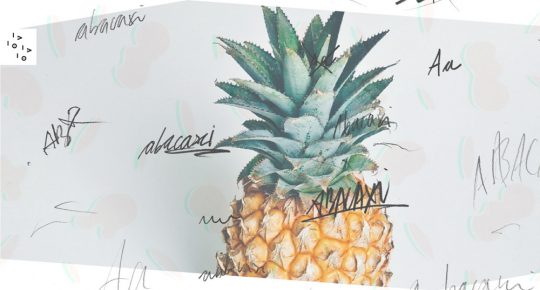 abacaxi
Aa
ABX
abacaxi
abacaxi
ABACAXI
ABACA
Aa
abacaxi